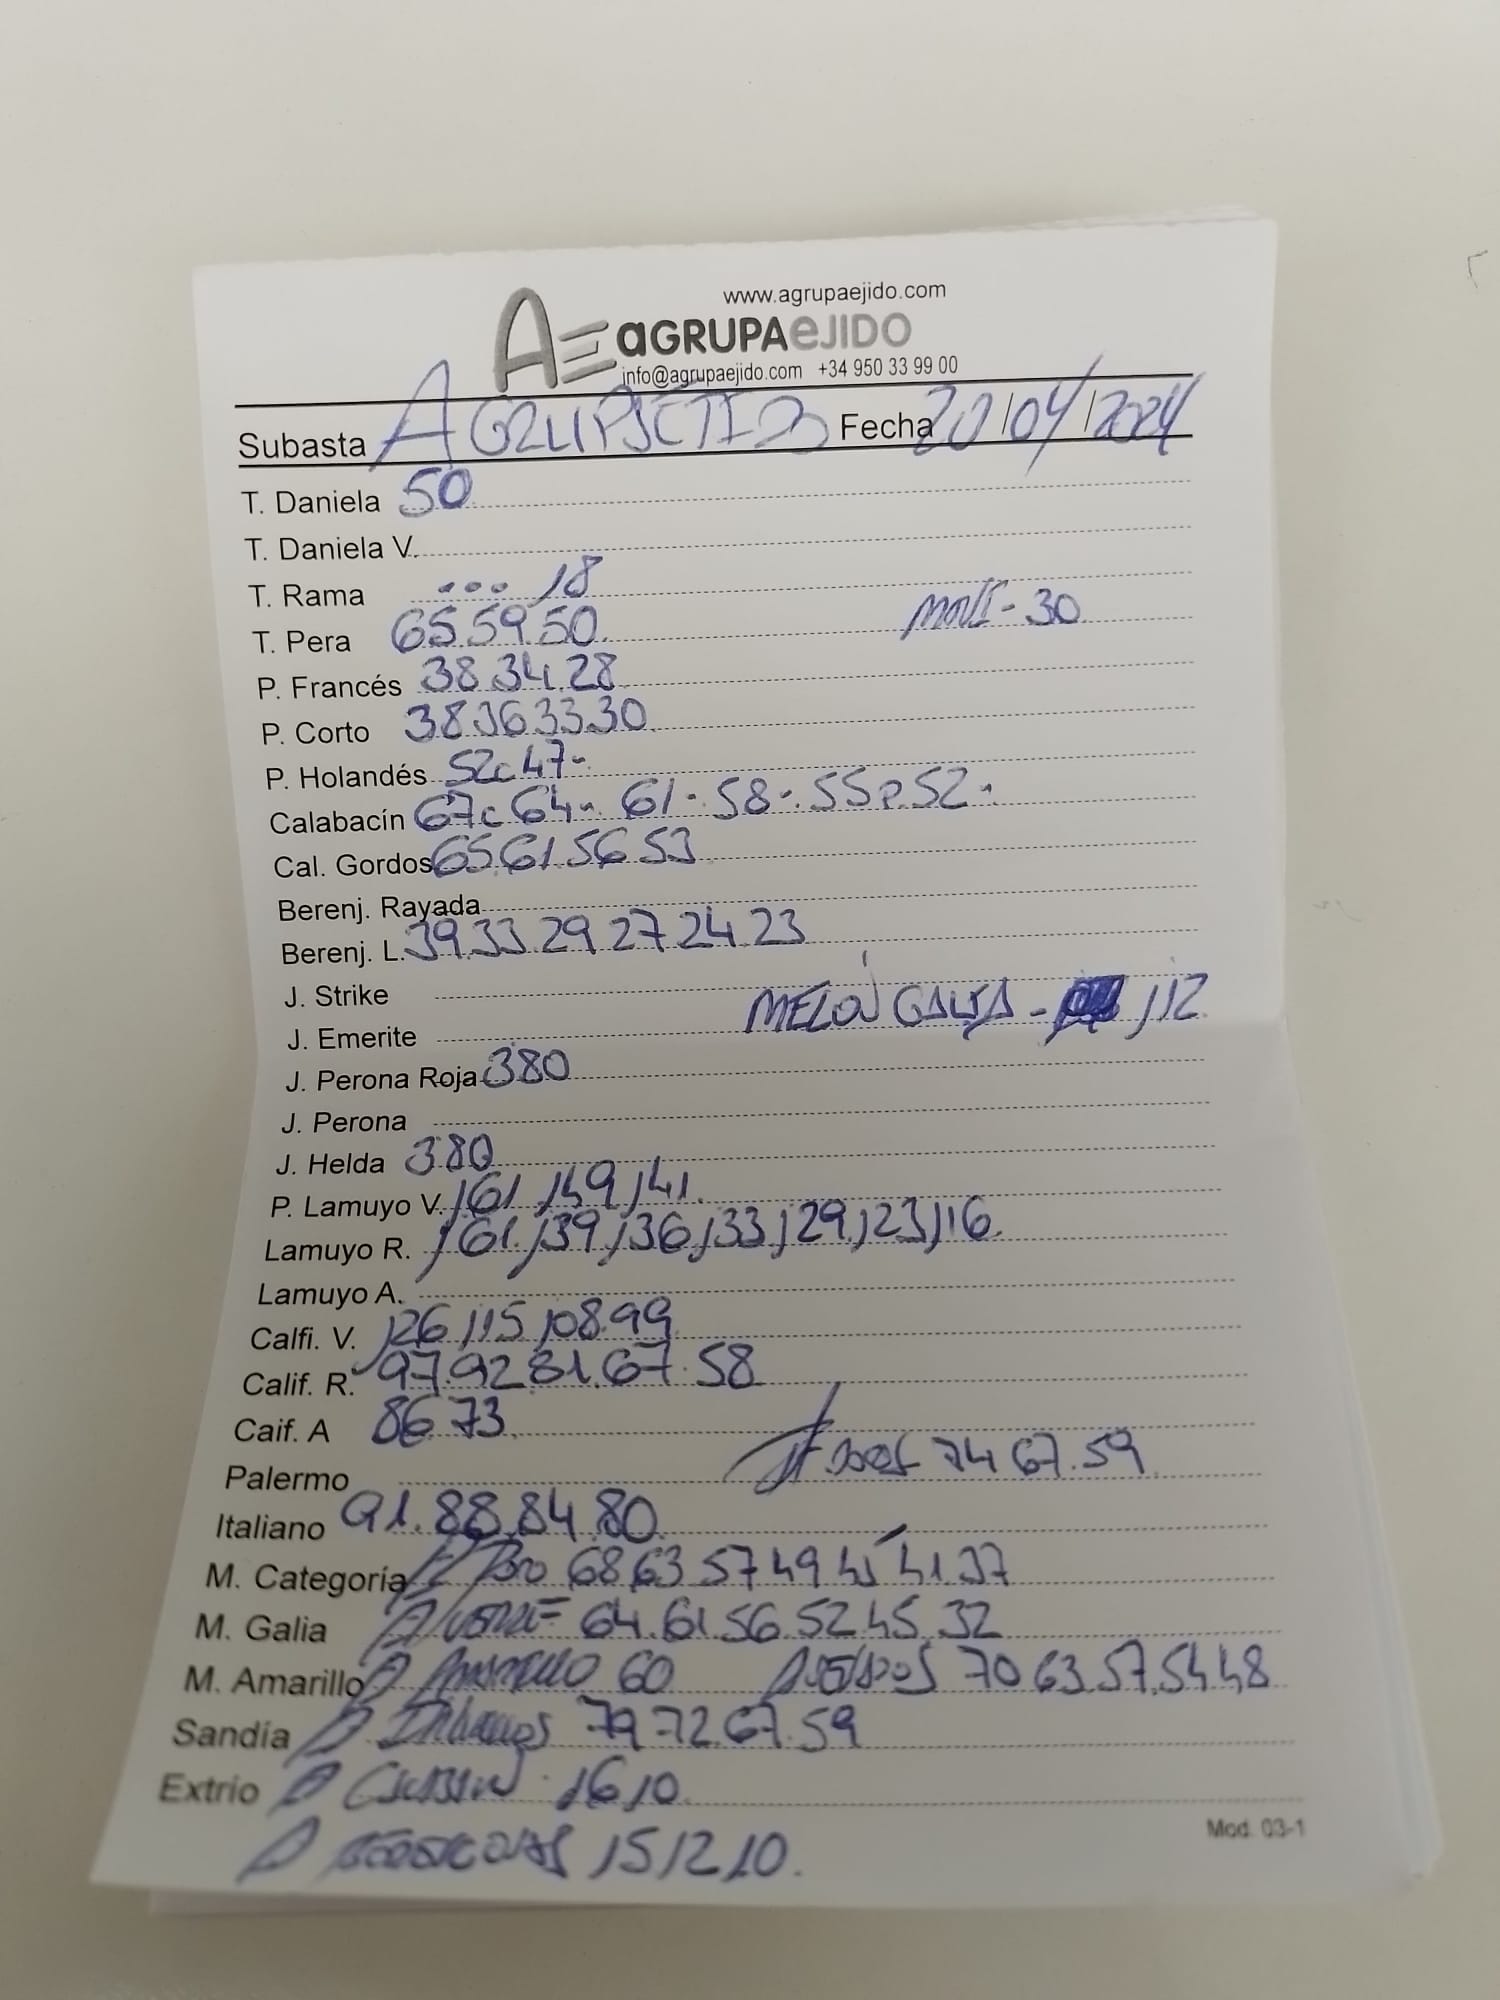 www.agrupaejido.com
AE aGRUPAeJIDO
info@agrupaejido.com +34 950 33 99 00
Subasta AGRUPAEJIDO Fecha 20/04/2024
T. Daniela 50
T. Daniela V.
T. Rama ... 18
T. Pera 65.59.50. - 30
P. Francés 38.34.28
P. Corto 38.36.33.30
P. Holandés 52c 47-
Calabacín 67c 64-. 61-. 58-. 55p. 52-.
Cal. Gordos 65.61.56 53
Berenj. Rayada
Berenj. L. 39.33.29 27 24.23
J. Strike
J. Emerite MELON GALIA - 112.
J. Perona Roja 380
J. Perona
J. Helda 380
P. Lamuyo V. 161 149 141.
Lamuyo R. 161.139 136 133 129.123 116.
Lamuyo A.
Calfi. V. 126 115 108.99
Calif. R. 97.92 81.67.58
Caif. A 86 73
Palermo 74 67.59
Italiano 91.88.84.80
M. Categoría 68 63 57 49 45 41.37
M. Galia 64.61.56.52 45.32
M. Amarillo AMARILLO 60 70 63.57.54 48
Sandía 79 72 67.59
Extrio 16 10.
15 12 10.
Mod. 03-1